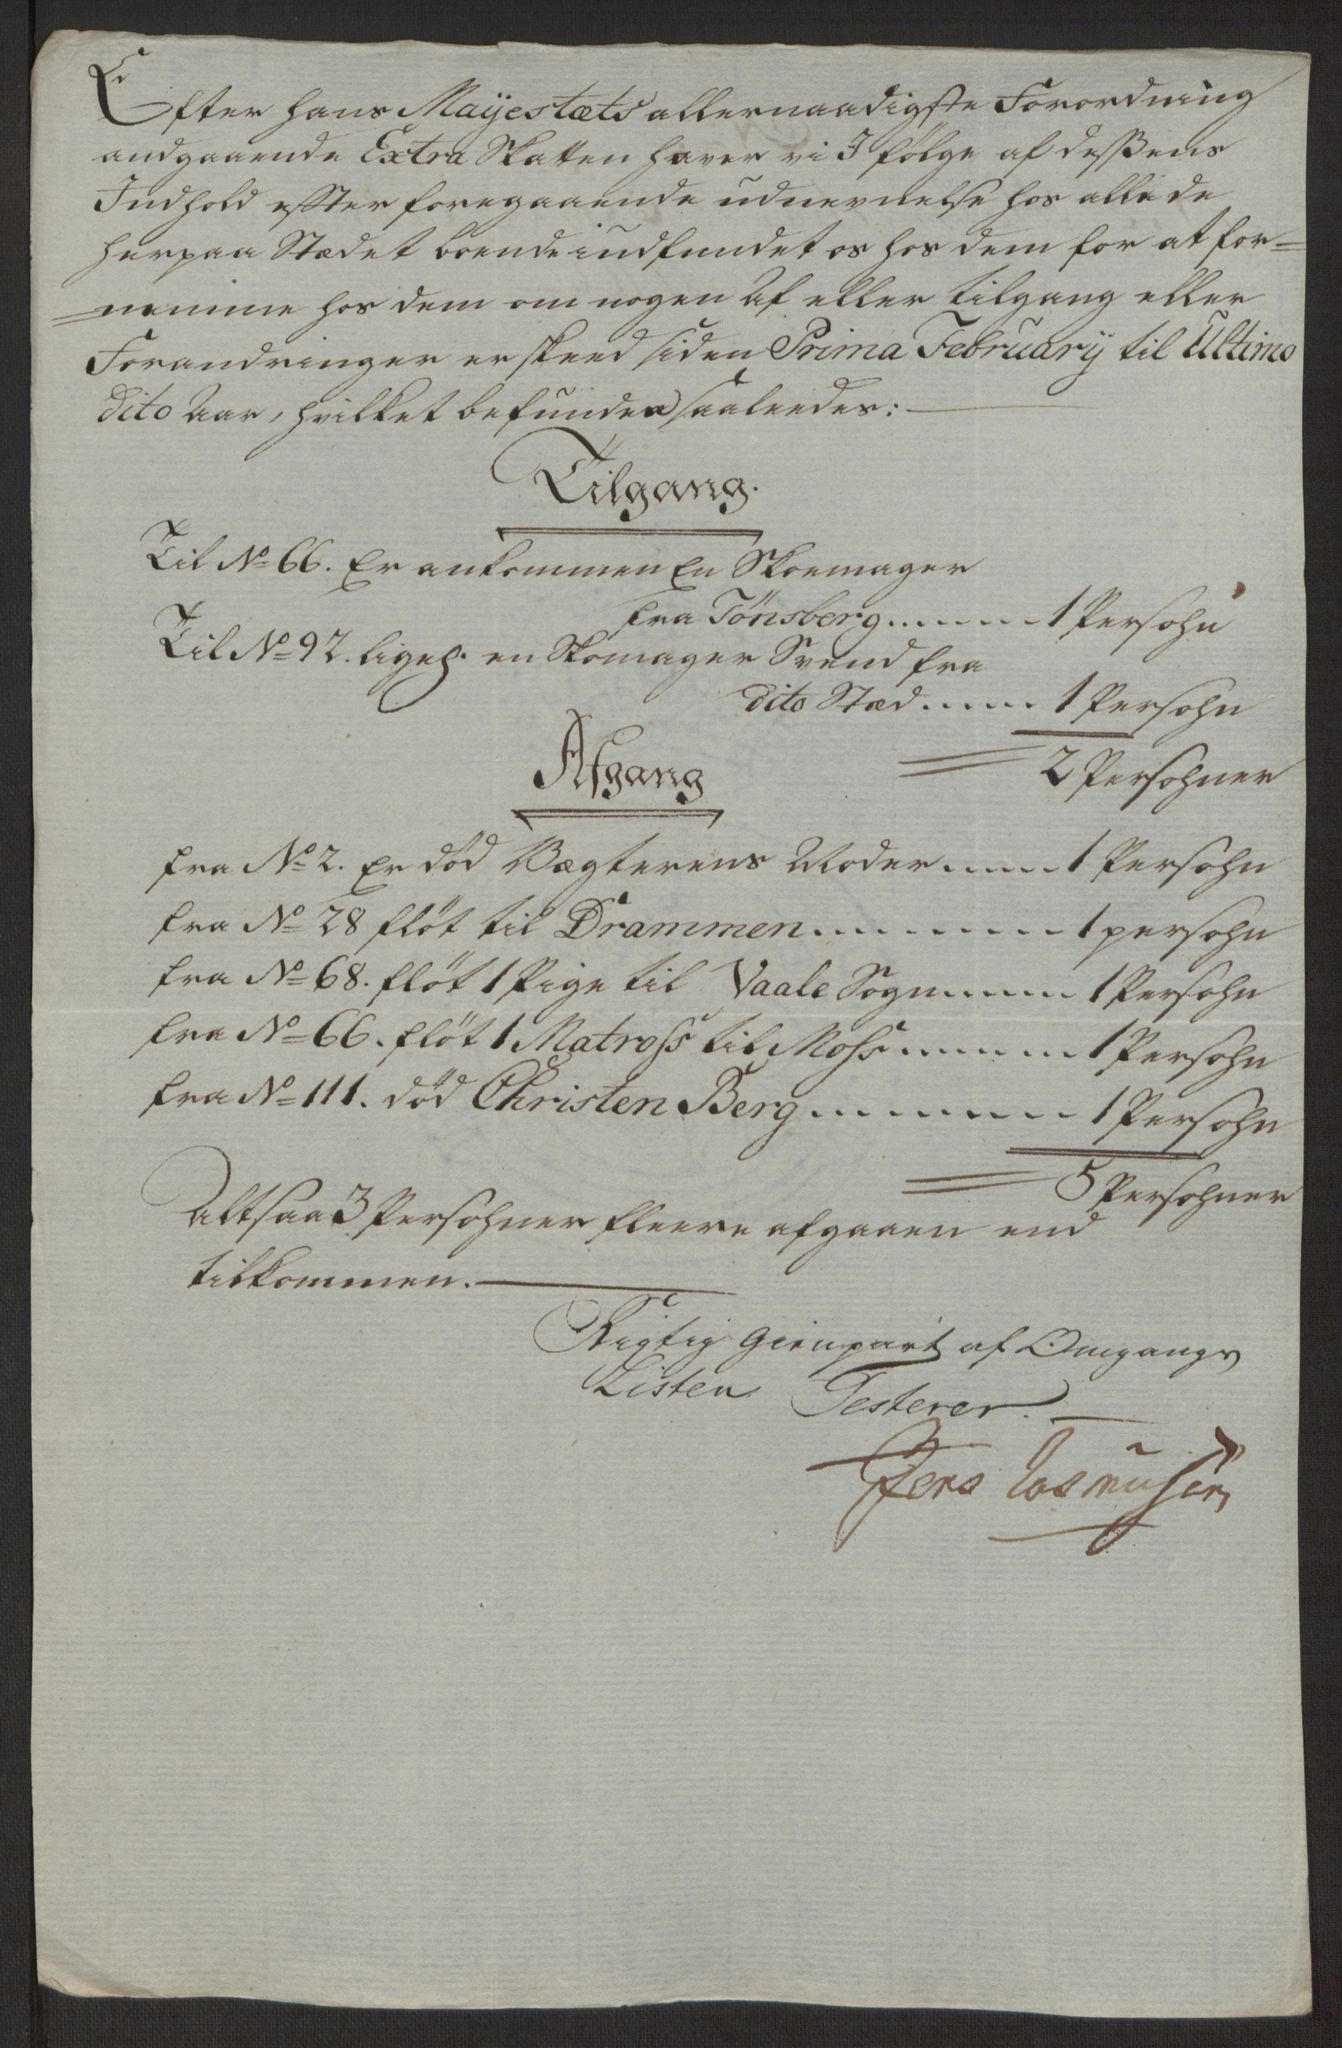 Efter hans Mayestæts allernaadigste Forordning
andgaaende Extra Skatten haver vi I følge af desßens
Indhold effter foregaaende udnevnelse hos alle de
herpaa Stædet boende indfundet os hos dem for at for=
=nemme hos dem om nogen Af eller tilgang eller
Forandringer er skeed siden Prima February til Ultimo
dito Aar, hvilket befunden saaleedes:
Tilgang.
Til No 66. Er ankommen En Skoemager
fra Tønsberg ...... 1 Persohn
Til No 92. ligel. en Skomager Svend fra
dito Stæd ..... 1 Persohn
2 Persohner
Afgang
fra No 2. Er död Vægterens Moder ..... 1 Persohn
fra No 28 flöt til Drammen .......... 1 persohn
fra No 68. flöt 1 Pige til Vaale Sogn ..... 1 Persohn
fra No 66. flöt 1 Matroß til Moss ....... 1 Persohn
fra No 111. död Christen Berg ......... 1 Persohn
5 Persohner
Altsaa 3 Persohner fleere afgaaen end
tilkommen.
Rigtig Gienpart af Omgangs
Listen Testerer.
Jens Rasmusen